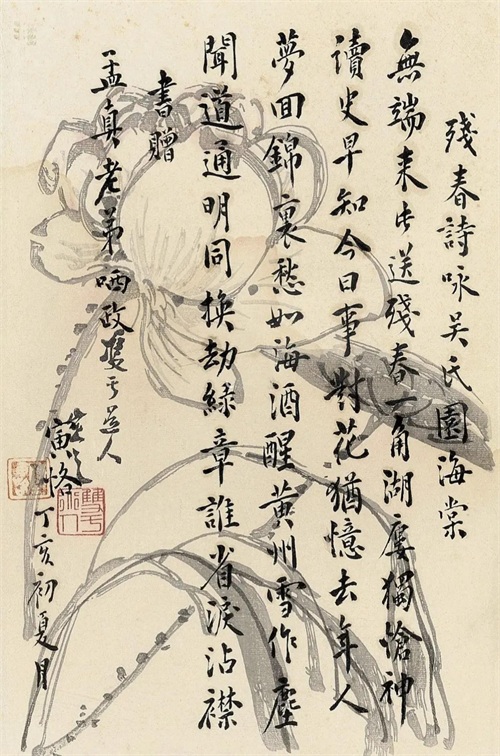 殘春詩咏吳氏園海棠
無端来此送殘春一角湖廔獨愴神
讀史早知今日事對花猶憶去年人
夢囬錦裏愁如海酒醒黄州雪作塵
聞道通明同換劫綠章誰省淚沾襟
書贈
孟真老弟哂政道人
寅恪丁亥初夏月